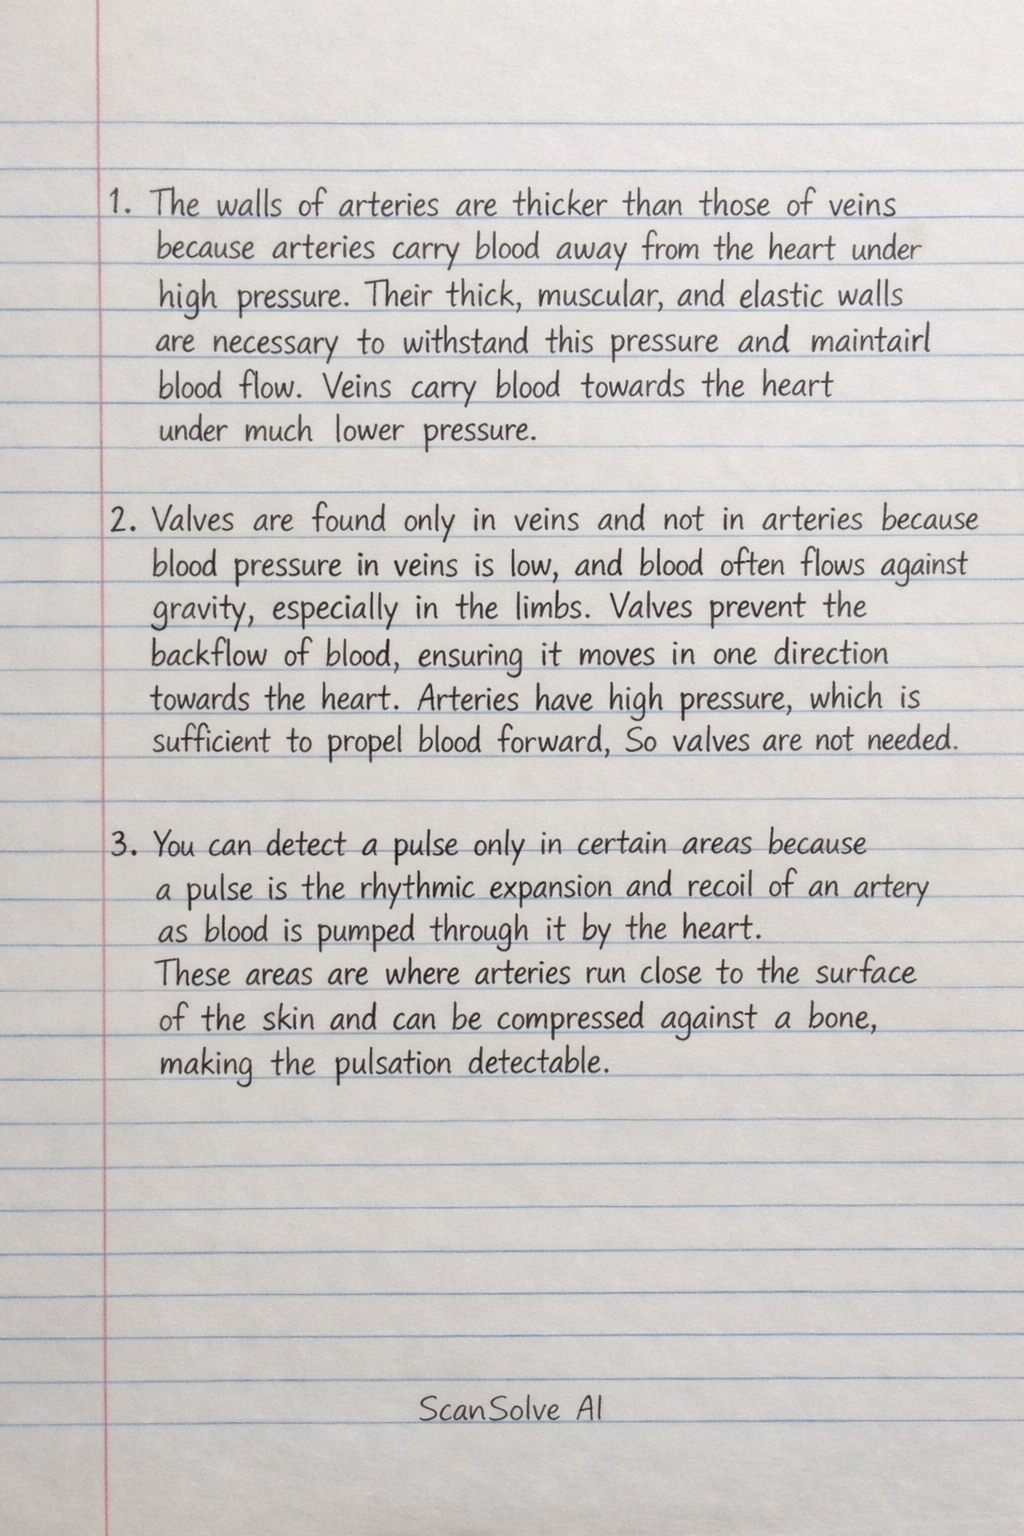 1. The walls of arteries are thicker than those of veins
because arteries carry blood away from the heart under
high pressure. Their thick, muscular, and elastic walls
are necessary to withstand this pressure and maintairl
blood flow. Veins carry blood towards the heart
under much lower pressure.
2. Valves are found only in veins and not in arteries because
blood pressure in veins is low, and blood often flows against
gravity, especially in the limbs. Valves prevent the
backflow of blood, ensuring it moves in one direction
towards the heart. Arteries have high pressure, which is
sufficient to propel blood forward, So valves are not needed.
3. You can detect a pulse only in certain areas because
a pulse is the rhythmic expansion and recoil of an artery
as blood is pumped through it by the heart.
These areas are where arteries run close to the surface
of the skin and can be compressed against a bone,
making the pulsation detectable.
ScanSolve AI